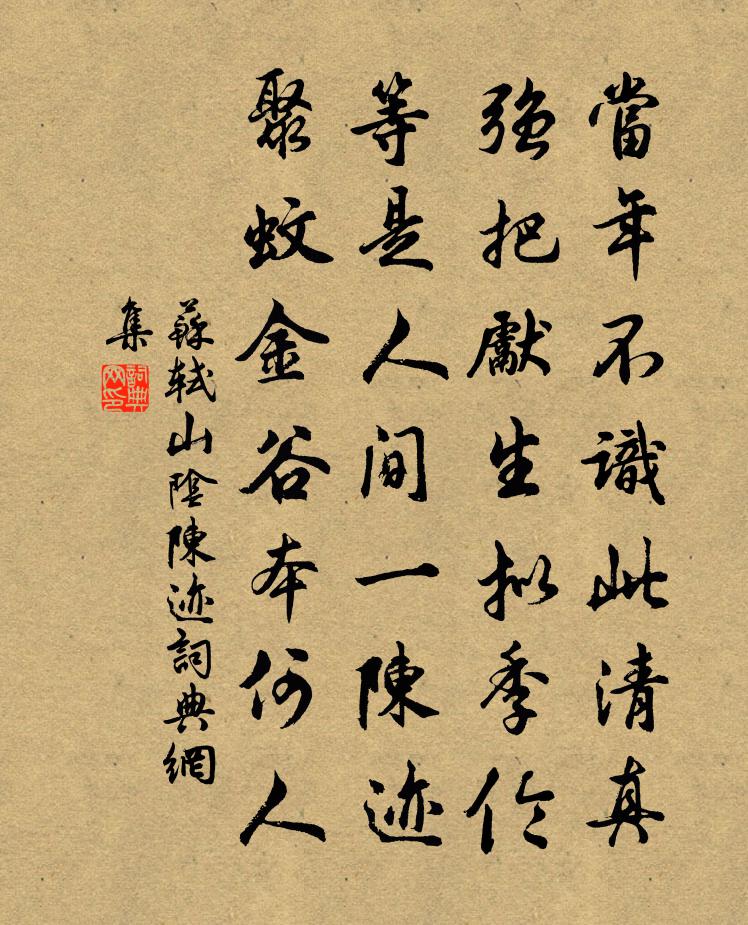 當年不識此清真
强把獻生拟季伦
等是人間一陳迹
聚蚊金谷本何人
蘇軾山陰陳迹詞典網
集
詞典
网印